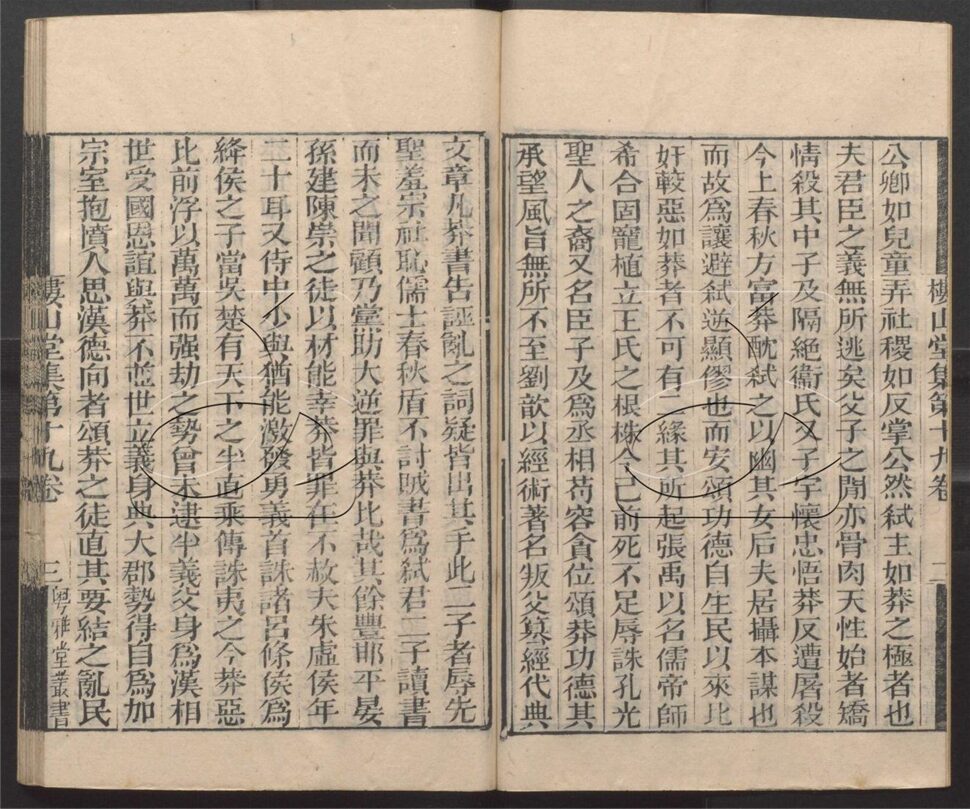 樓山堂集第十九卷 二
公卿如兒童弄社稷如反掌公然弑主如莽之極者也
夫君臣之義無所逃矣父子之閒亦骨肉天性始者矯
情殺其中子及隔絕衞氏又子宇懷忠悟莽反遭屠殺
今上春秋方富莽酖弑之以幽其女后夫居攝本謀也
而故爲讓避弑逆顯僇也而安頌功德自生民以來比
奸較惡如莽者不可有二緣其所起張禹以名儒帝師
希合固寵植立王氏之根株今已前死不足辱誅孔光
聖人之裔又名臣子及爲丞相苟容貪位頌莽功德其
承望風旨無所不至劉歆以經術著名叛父篡經代典
文章凡莽書告誣亂之詞疑皆出其手此二子者辱先
聖羞宗祖恥儒士春秋盾不討賊書爲弑君二子讀書
而未之聞顧乃黨助大逆罪與莽比哉其餘豐邯平晏
孫建陳崇之徒以材能幸莽皆罪在不赦夫朱虛侯年
二十耳又侍中少與猶能激發勇義首誅諸呂條侯爲
絳侯之子當吳楚有天下之半直乘傳誅夷之今莽惡
比前浮以萬萬而强劫之勢曾未逮半義父身爲漢相
世受國恩誼與莽不並世立義身典大郡勢得自爲加
宗室抱憤人思漢德向者頌莽之徒直其要結之亂民
樓山堂集第十九卷 三 粵雅堂叢書